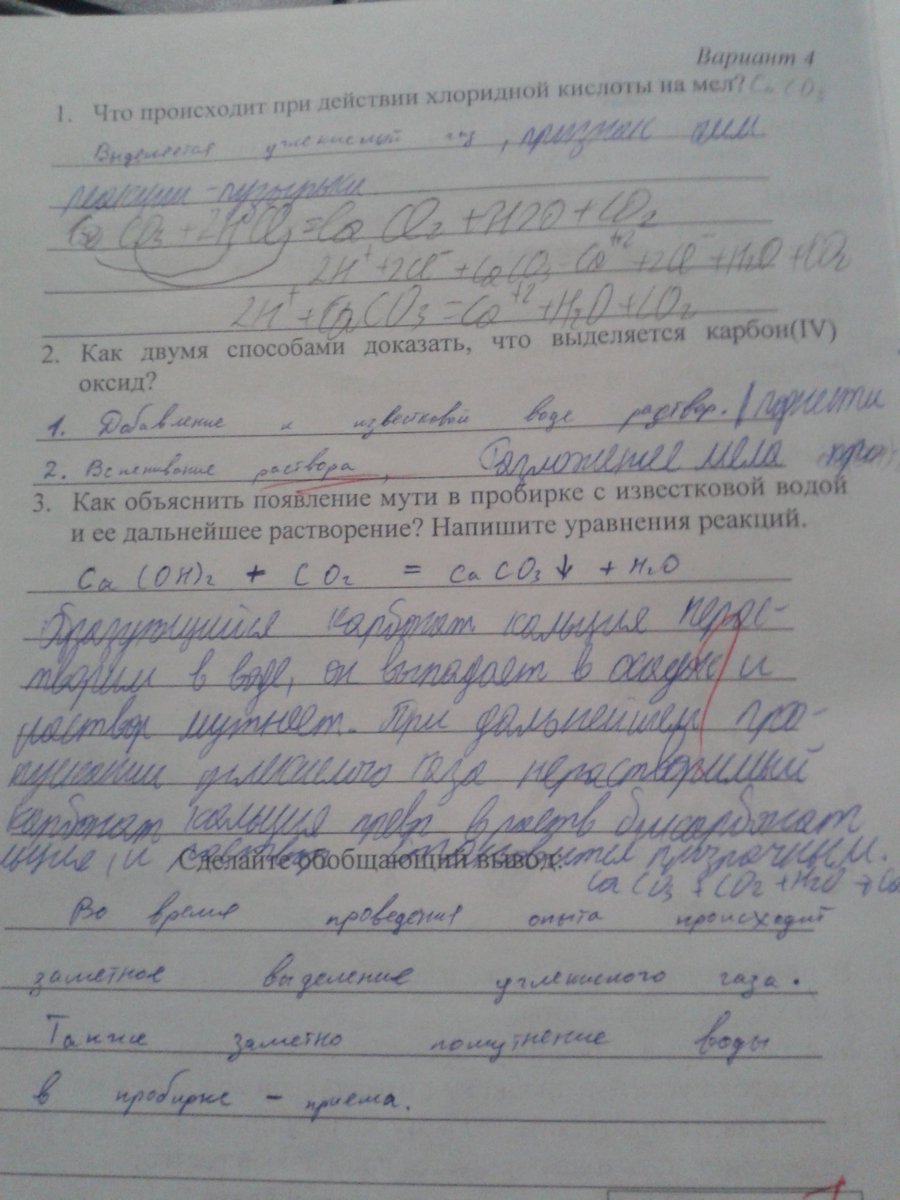 Вариант 4
1. Что происходит при действии хлоридной кислоты на мел? CaCO3
Выделяется углекислый газ, признак хим
реакции - пузырьки
CO3 + 2H = Ca + H2O + CO2
2H+ + 2Cl- + CaCO3 = Ca+2 + 2Cl- + H2O + CO2
2H+ + CaCO3 = Ca+2 + H2O + CO2
2. Как двумя способами доказать, что выделяется карбон(IV)
оксид?
1. Добавление к известковой воде раствор. / поднести
2. Вспенивание раствора, Разложение мела
3. Как объяснить появление мути в пробирке с известковой водой
и ее дальнейшее растворение? Напишите уравнения реакций.
Ca(OH)2 + CO2 = CaCO3↓ + H2O
Образующийся карбонат кальция нерас-
творим в воде, он выпадает в осадок и
раствор мутнеет. При дальнейшем про-
пускании углекислого газа нерастворимый
карбонат кальция превр в раств бикарбонат
льция, и раствор становится прозрачным.
Сделайте обобщающий вывод:
CaCO3 + CO2 + H2O → Ca
Во время проведения опыта происходит
заметное выделение углекислого газа.
Также заметно помутнение воды
в пробирке - приема.